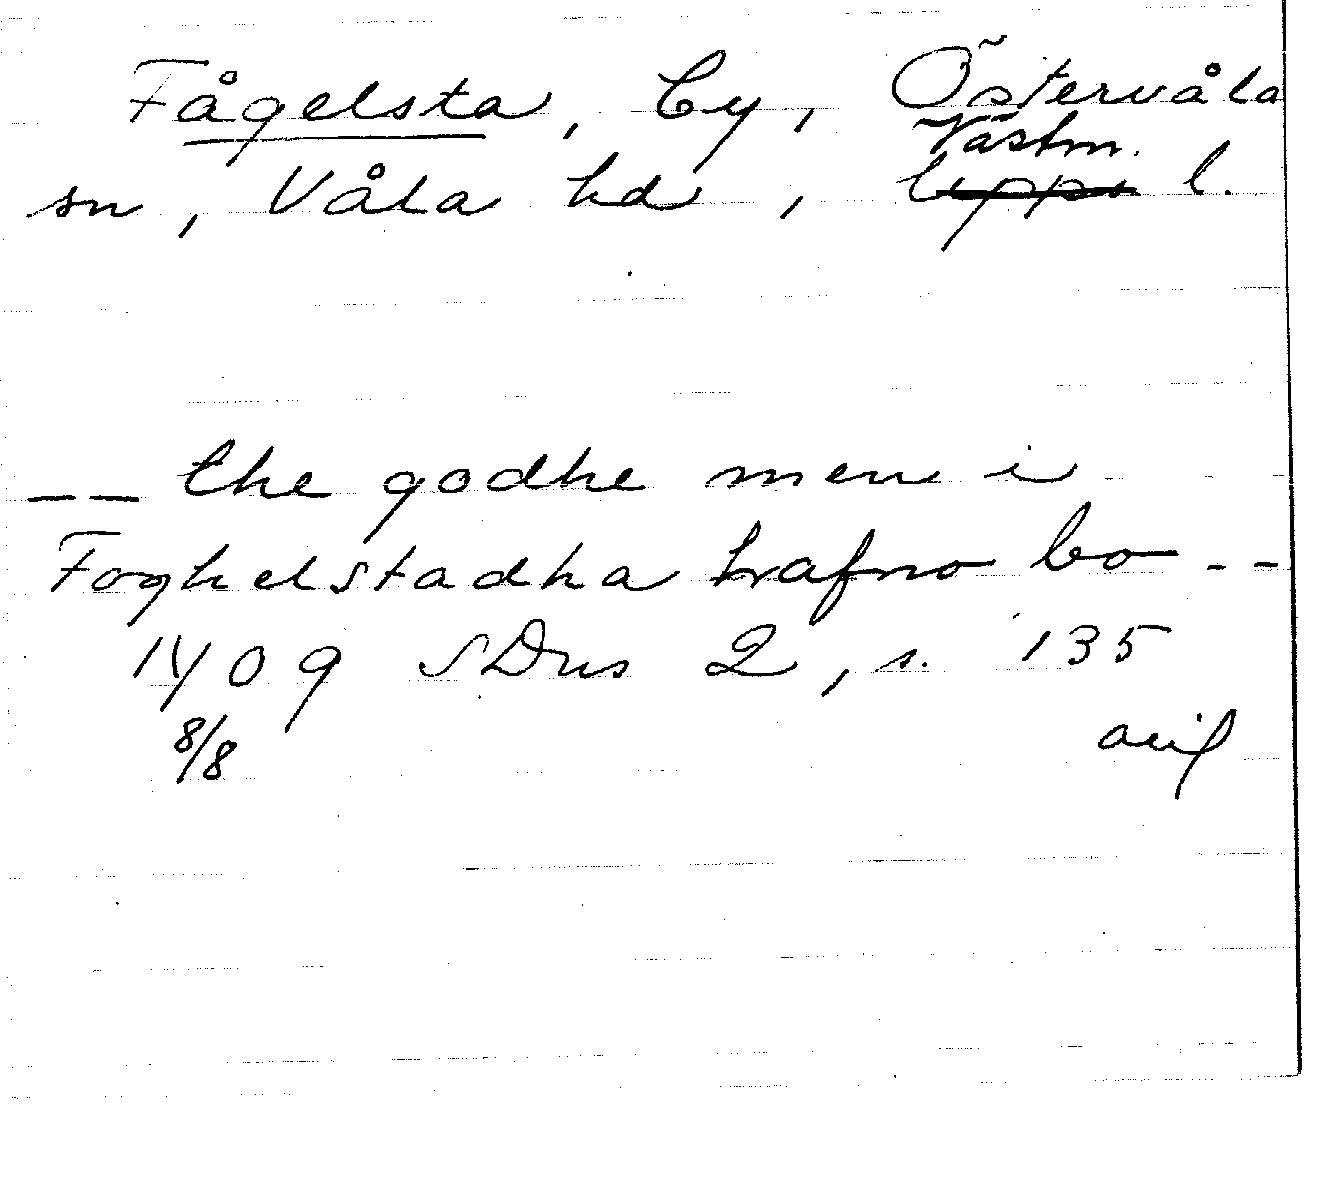 Fågelsta, by, Östervåla
Västm.
sn, Våla hd, Upps l.
-- the godhe men i
Foghelstadha hrafno bo --
1409 SDns 2, s. 135
8/8 avif